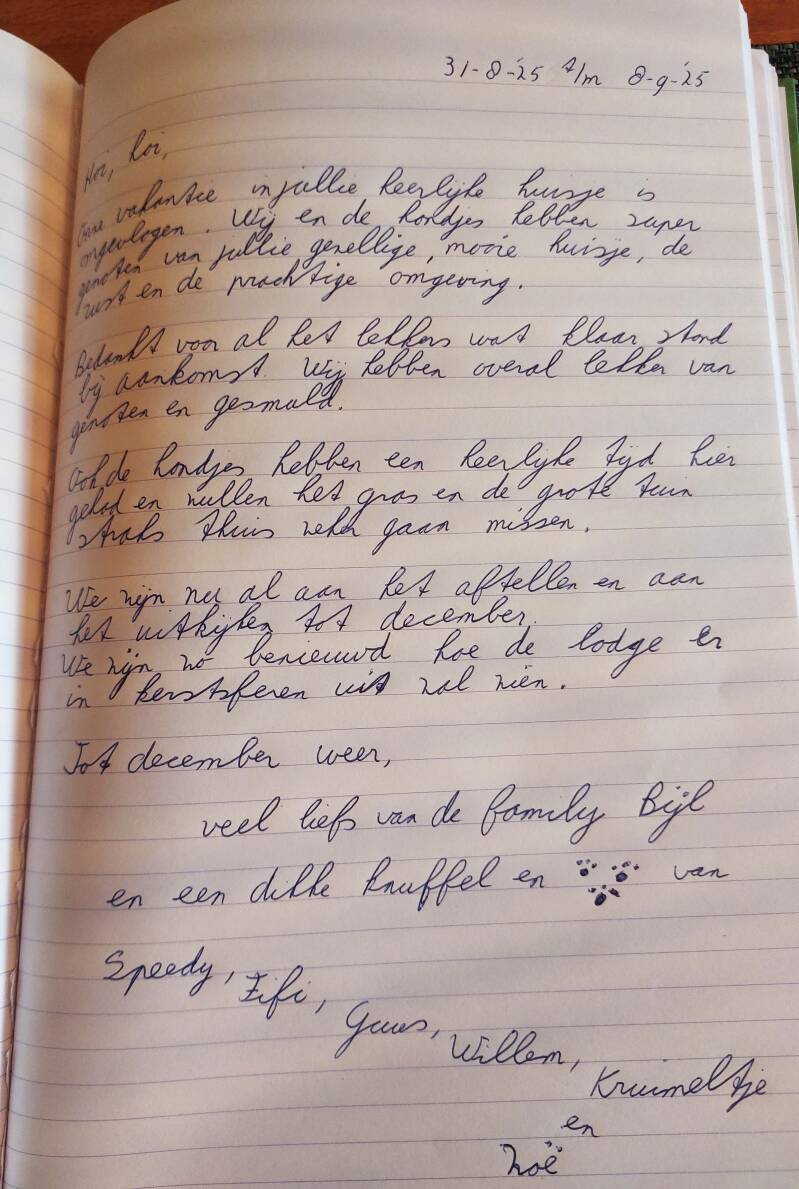 31-8-'25 t/m 8-9-'25
Hoi, hoi,
Onze vakantie in jullie heerlijke huisje is
omgevlogen. Wij en de hondjes hebben super
genoten van jullie gezellige, mooie huisje, de
rust en de prachtige omgeving.
Bedankt voor al het lekkers wat klaar stond
bij aankomst. Wij hebben overal lekker van
genoten en gesmuld.
Ook de hondjes hebben een heerlijke tijd hier
gehad en zullen het gras en de grote tuin
straks thuis zeker gaan missen.
We zijn nu al aan het aftellen en aan
het uitkijken tot december.
We zijn zo benieuwd hoe de lodge er
in kerstsferen uit zal zien.
Tot december weer,
veel liefs van de family Bijl
en een dikke knuffel en van
Speedy, Fifi, Guus, Willem, Kruimeltje
en
Zoë